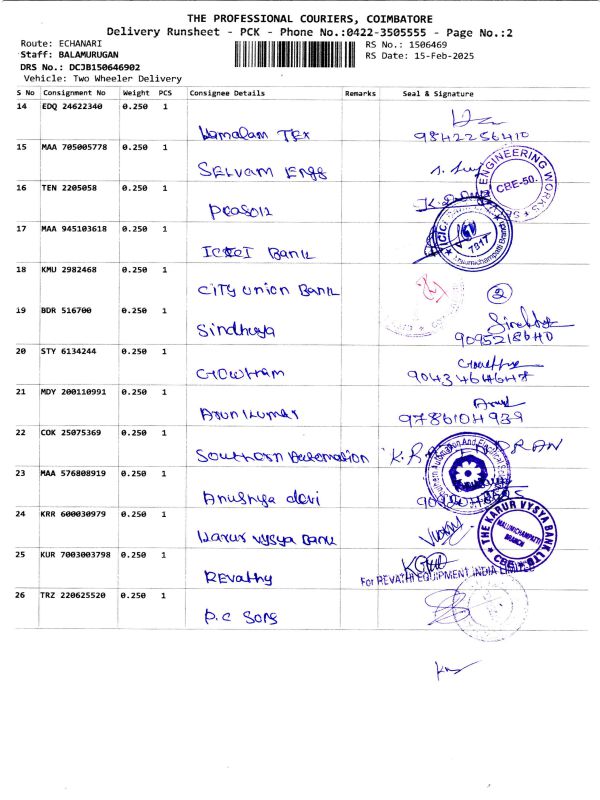 THE PROFESSIONAL COURIERS, COIMBATORE
Delivery Runsheet - PCK - Phone No.:0422-3505555 - Page No.:2
Route: ECHANARI
RS No.: 1506469
Staff: BALAMURUGAN
RS Date: 15-Feb-2025
DRS No.: DCJB150646902
Vehicle: Two Wheeler Delivery
S No Consignment No Weight PCS Consignee Details Remarks Seal & Signature
14 EDQ 24622340 0.250 1
Kamalam TEX 9842256410
15 MAA 705005778 0.250 1
SELvam Engg
ENGINEERING WORKS
CBE-50.
16 TEN 2205058 0.250 1
17 MAA 945103618 0.250 1
ICICI Bank
ICICI
7917
18 KMU 2982468 0.250 1
CiTy union Bank
2
19 BDR 516700 0.250 1
Sindhuya 9095218640
20 STY 6134244 0.250 1
Gowtham 9043464647
21 MDY 200110991 0.250 1
Arun Kumar 9786104939
22 COK 25075369 0.250 1
Southern Automation
Southern Automation And Electrical
23 MAA 576808919 0.250 1
Anushya devi
24 KRR 600030979 0.250 1
Karur vysya Bank
THE KARUR VYSYA BANK LTD
MALUMICHAMPATTI
BRANCH
CBE
25 KUR 7003003798 0.250 1
REvathy
For REVATHI EQUIPMENT INDIA LIMITED
26 TRZ 220625520 0.250 1
P.C Sons